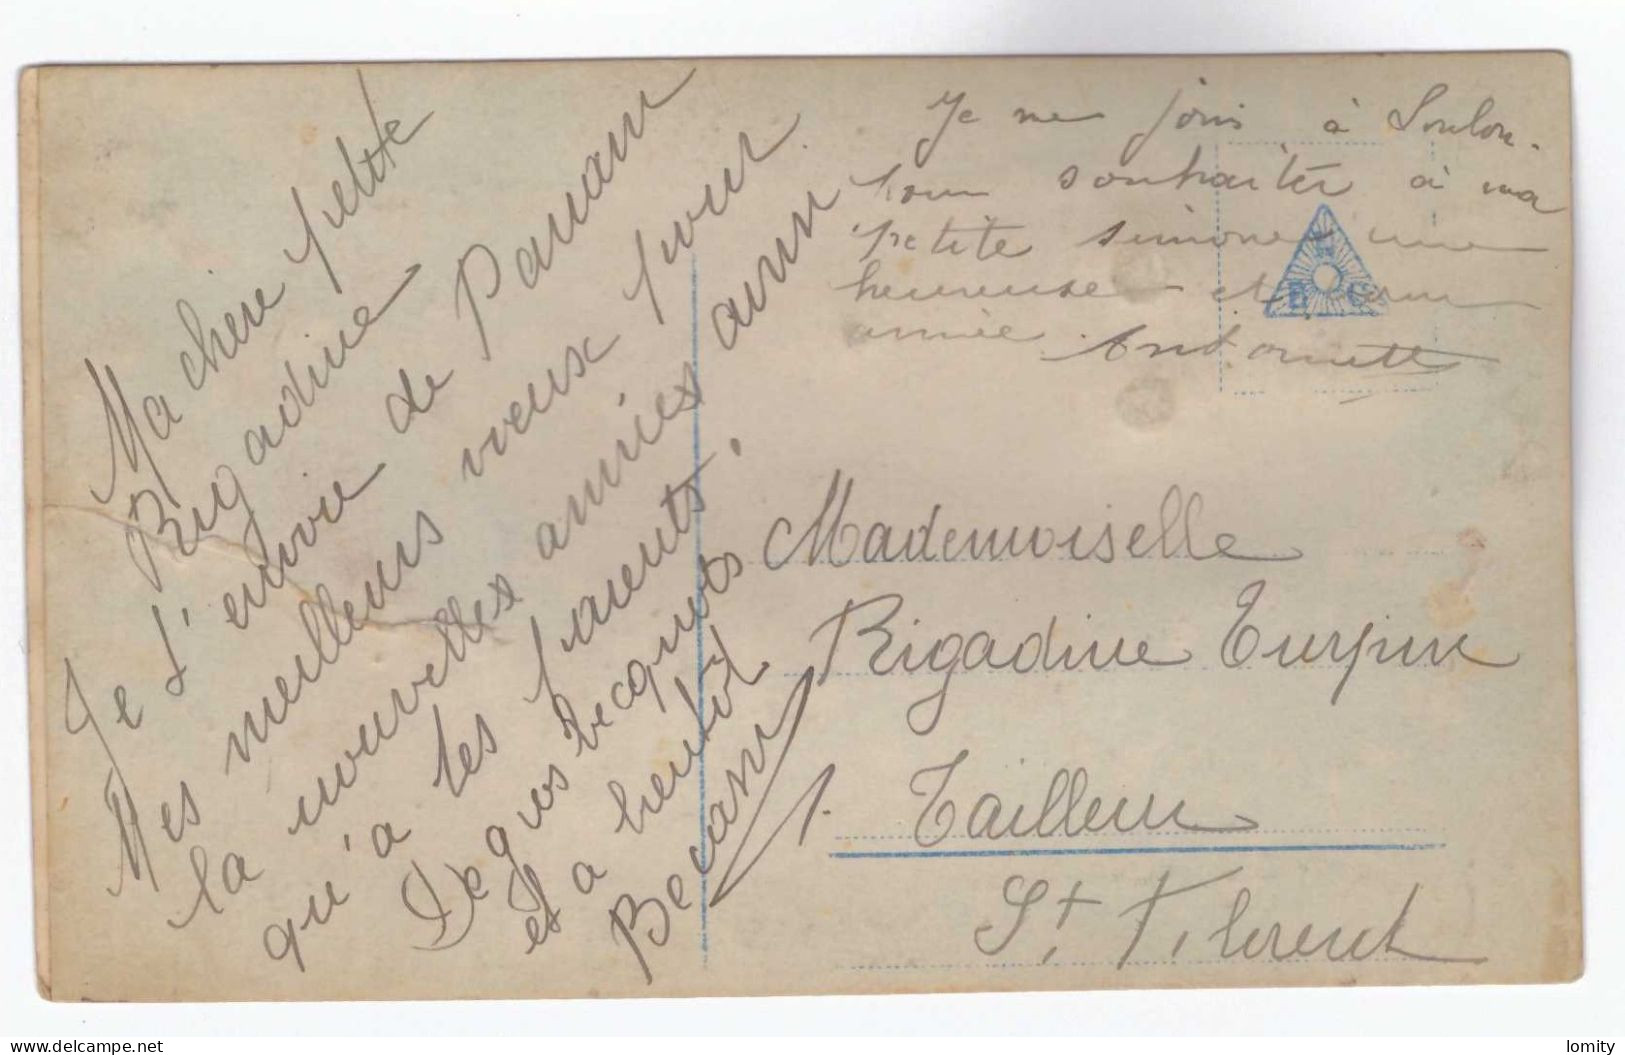 Ma chère petite
Rigadine
Je t'envoie de Pamam
Mes meilleurs voeux pour
la nouvelles années ainn
qu'a tes parents.
De gros becquots
et a bentot
Becam
Je me joins à Loulou
pour souhaiter à ma
petite simone une
heureuse et bonne
année Antoinette
N
B C
Mademoiselle
Rigadine Turpin
Tailleur
St. Florent
delcampe.net
lomity